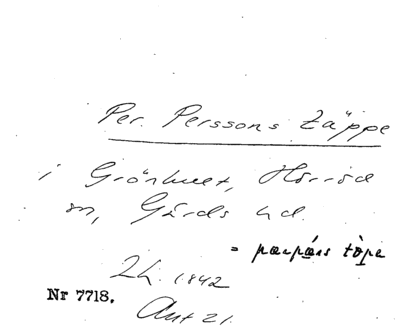 Per Perssons täppe
i Grönhult, Hörröd
sn, Gärds hd.
= pærpæ̀rs tὸpə
Lh. 1842
Nr 7718.
Akt 21.